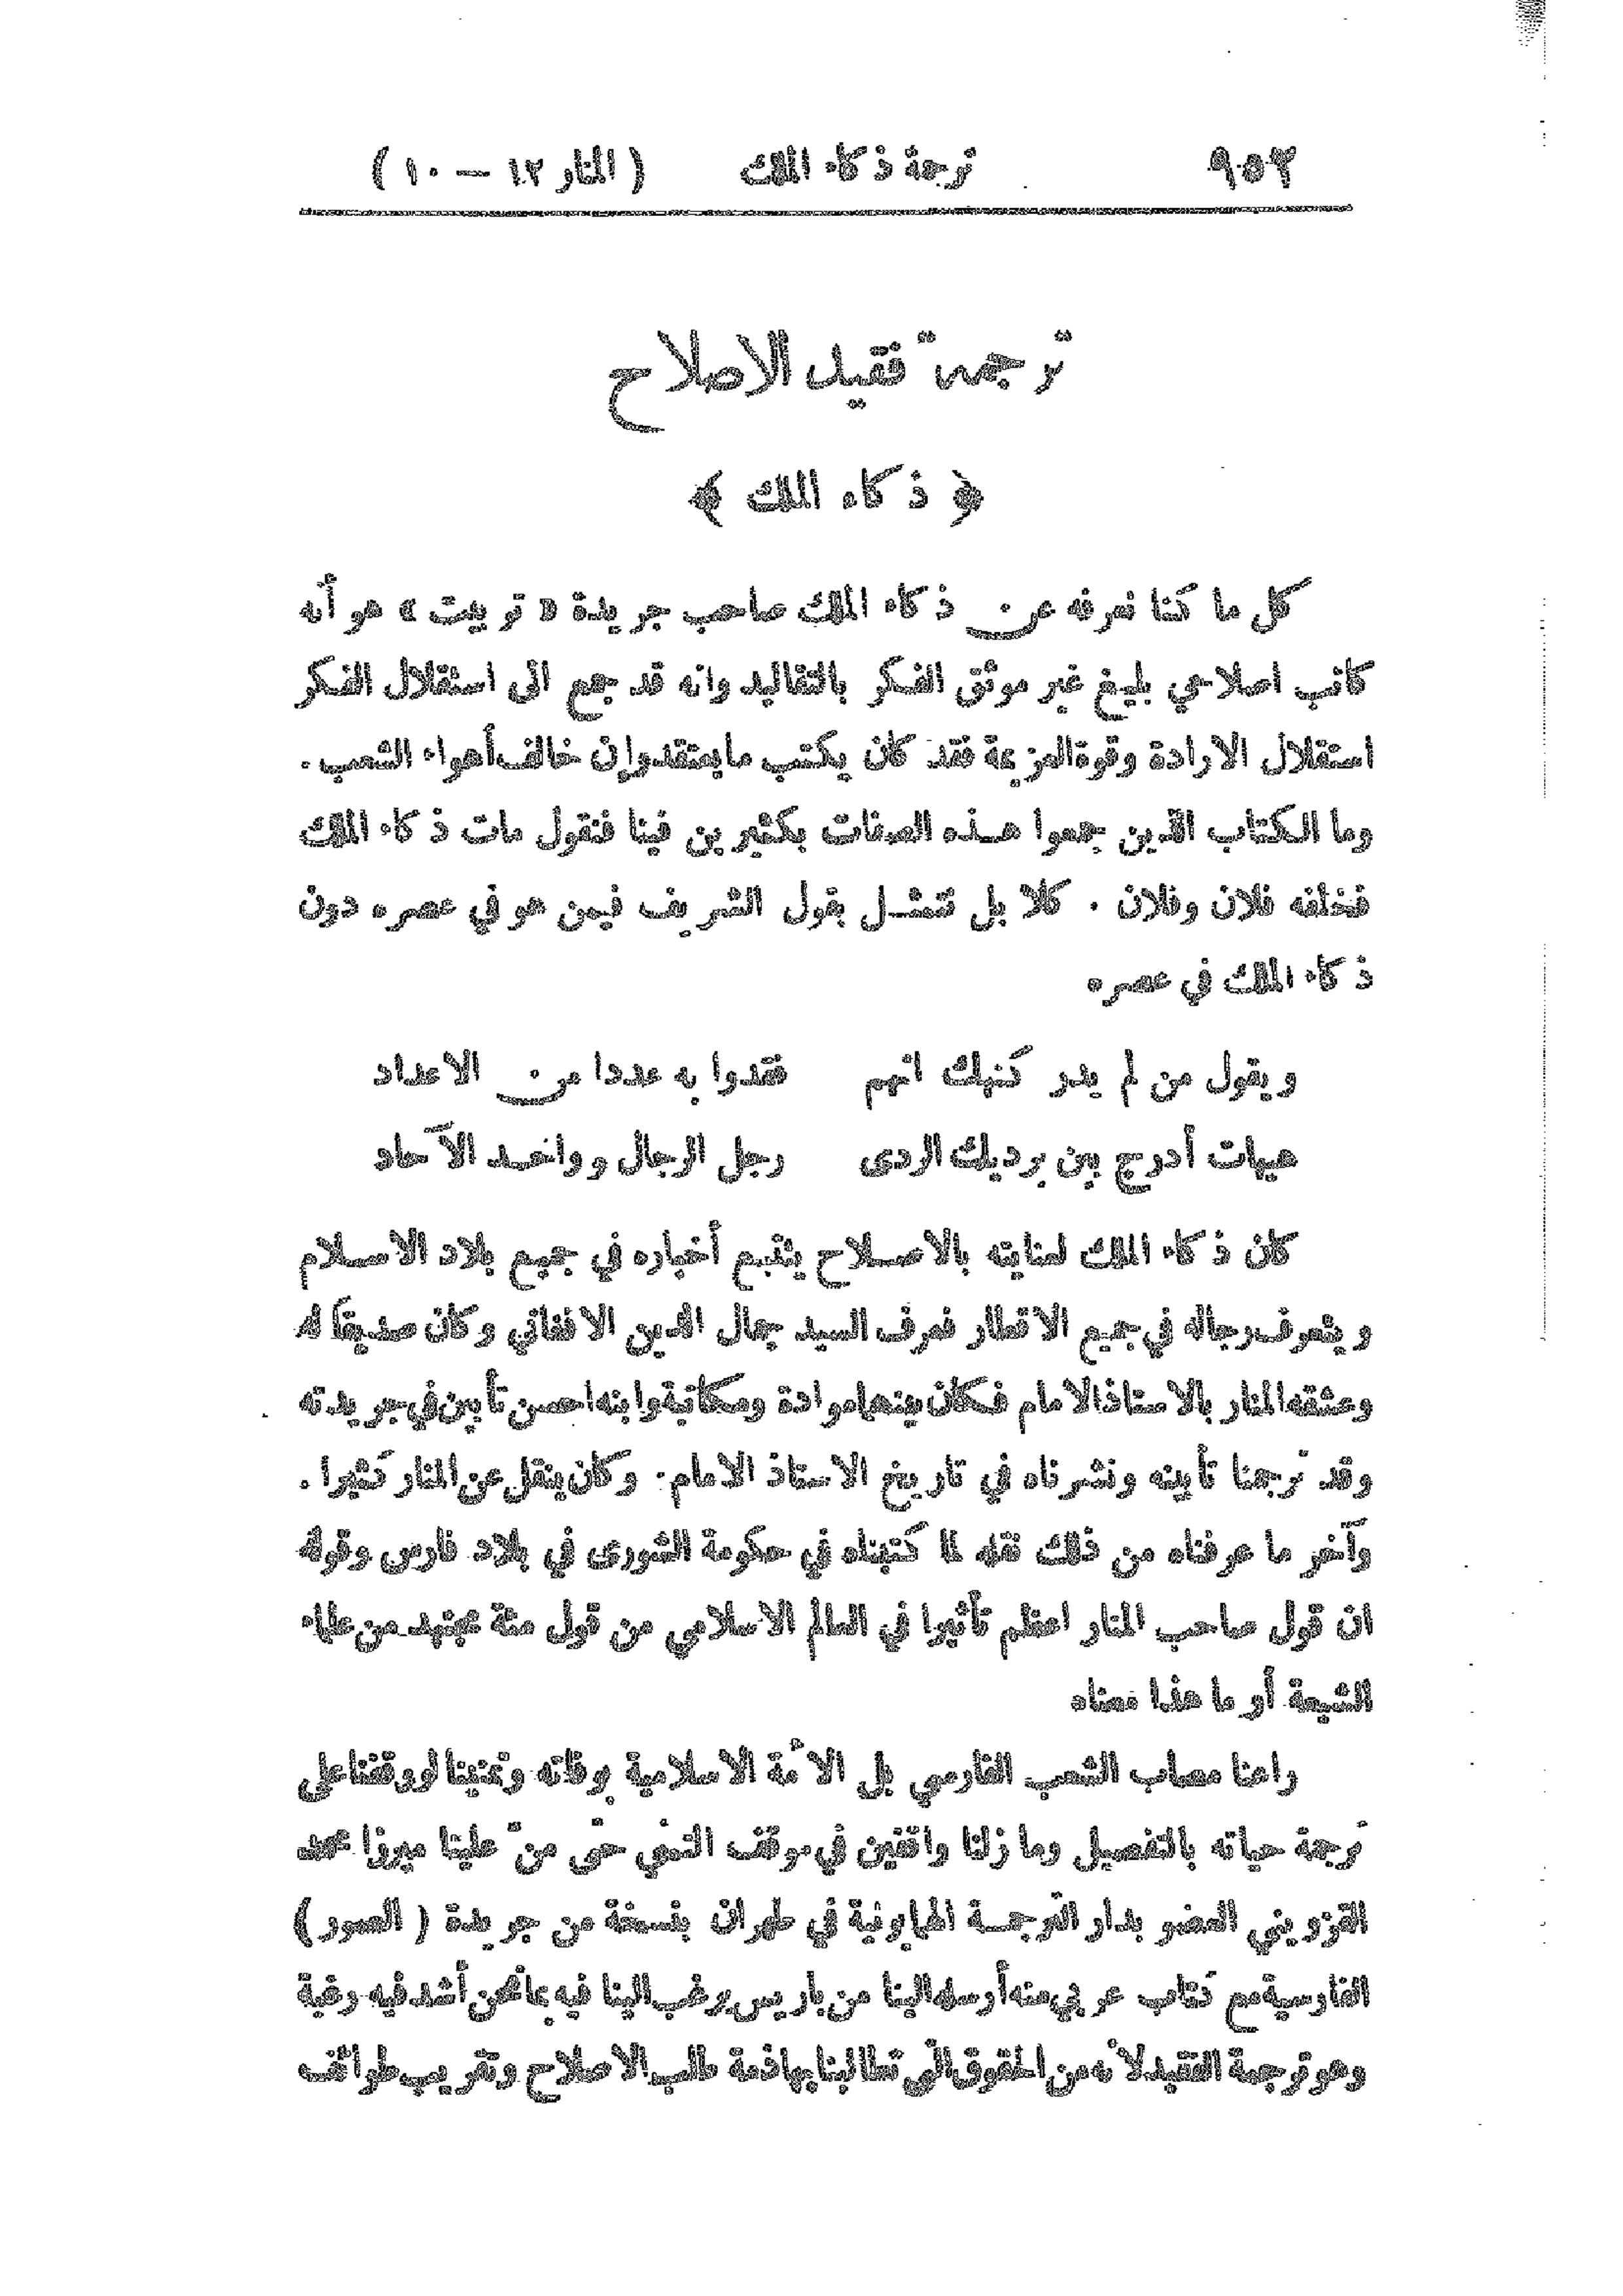 ٩٥٣ ترجمة ذكاء الملك ( المنار ١٢ — ١٠ )
ترجمة فقيد الاصلاح
﴿ ذكاء الملك ﴾
كل ما كنا نعرفه عن ذكاء الملك صاحب جريدة « تربيت » هو أنه
كاتب اصلاحي بليغ غير موثق الفكر بالتقاليد وانه قد جمع الى استقلال الفكر
استقلال الارادة وقوة العزيمة فقد كان يكتب ما يعتقد وإن خالف أهواء الشعب .
وما الكتاب الذين جمعوا هذه الصفات بكثيرين فينا فنقول مات ذكاء الملك
فخلفه فلان وفلان . كلا بل نتمثل بقول الشريف فيمن هو في عصره دون
ذكاء الملك في عصره
ويقول من لم يدر كنهك انهم فقدوا به عددا من الاعداد
هيهات أدرج بين برديك الردى رجل الرجال وواحد الآحاد
كان ذكاء الملك لعنايته بالاصلاح يتتبع أخباره في جميع بلاد الاسلام
ويتعرف رجاله في جميع الاقطار فعرف السيد جمال الدين الافغاني وكان صديقاً له
وعشقه المنار بالاستاذ الامام فكان بينهما موادة ومكاتبة وابنه احسن تأبين في جريدته
وقد ترجمنا تأبينه ونشرناه في تاريخ الاستاذ الامام . وكان ينقل عن المنار كثيرا .
وآخر ما عرفناه من ذلك نقله لما كتبناه في حكومة الشورى في بلاد فارس وقوله
ان قول صاحب المنار اعظم تأثيرا في العالم الاسلامي من قول مئة مجتهد من علماء
الشيعة أو ما هذا معناه
راعنا مصاب الشعب الفارسي بل الأمة الاسلامية بوفاته وتمنينا لو وقفنا على
ترجمة حياته بالتفصيل وما زلنا واقفين في موقف التمني حتى منّ علينا ميرزا محمد
القزويني العضو بدار الترجمة الهمايونية في طهران بنسخة من جريدة ( الصور )
الفارسية مع كتاب عربي منه أرسله الينا من باريس يرغب الينا فيه بما نحن أشد فيه رغبة
وهو ترجمة الفقيد لأنه من الحقوق التي تطالبنا بها ذمة طلب الاصلاح وتقريب طوائف